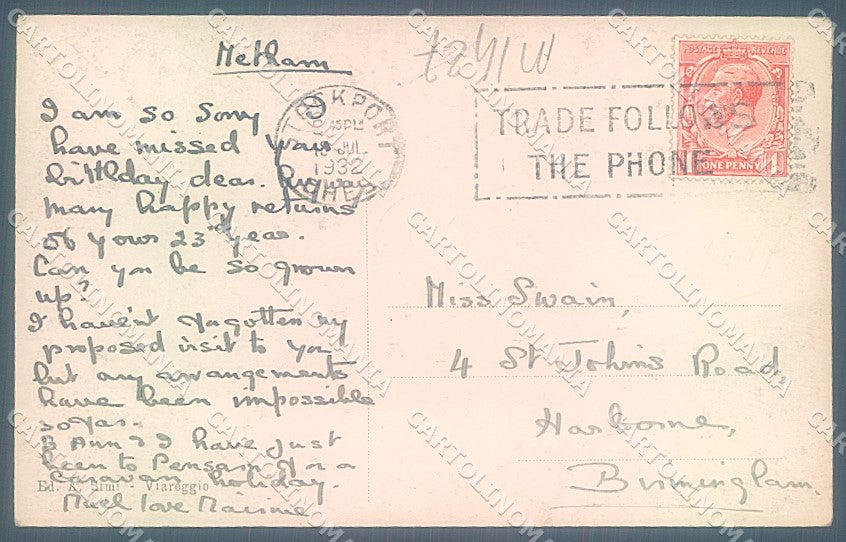 Metham
I am so sorry
have missed your
birthday dear. Anyway
many happy returns
of your 23rd year.
Can you be so grown
up?
I haven't forgotten my
proposed visit to you
but any arrangements
have been impossible
so far.
B Ann & I have just
been to Pensarn for a
caravan holiday.
Much love
Ed. K. Simi - Viareggio
STOCKPORT
PM
JUL
1932
CHE
TRADE FOLLOWS
THE PHONE
POSTAGE REVENUE
ONE PENNY
1D
Miss Swain,
4 St Johns Road
Harborne,
Birmingham.
CARTOLINOMANIA